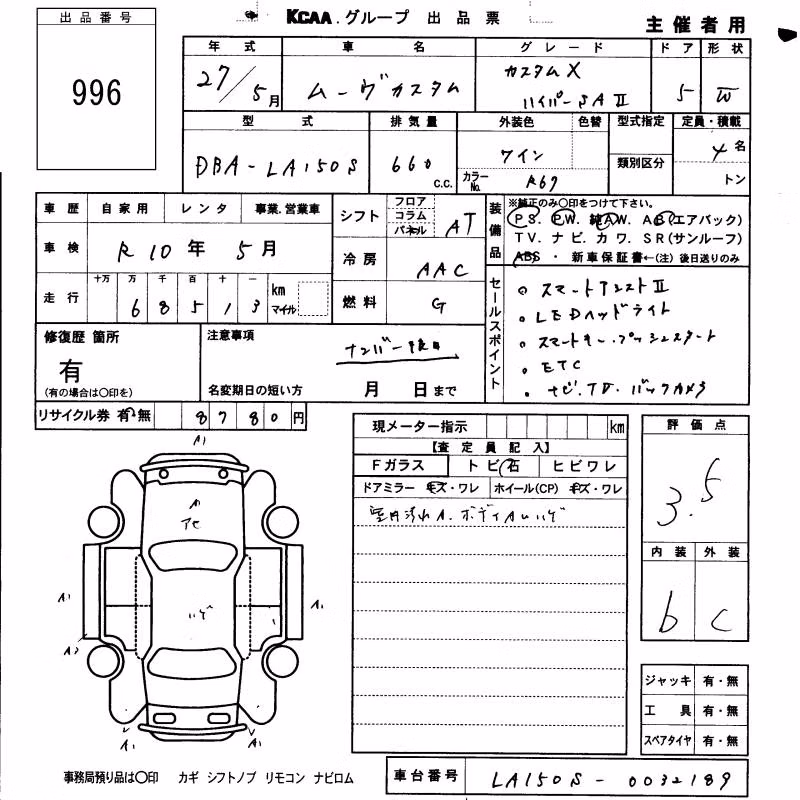 KCAA グループ 出品票
主催者用
出品番号
996
年式 車名 グレード ドア 形状
27/5月 ムーヴカスタム カスタムX ハイパーSAⅡ 5 W
型式 排気量 外装色 色替 型式指定 定員・積載
DBA-LA150S 660 C.C. ワイン 類別区分 4名
カラーNo. R69 トン
車歴 自家用 レンタ 事業.営業車
車検 R10年5月
走行 十万 万 千 百 十 km マイル
68513
シフト フロア コラム パネル AT
冷房 AAC
燃料 G
装備品
※純正のみ〇印をつけて下さい。
PS. PW. 純AW. AB(エアバック)
TV. ナビ. カワ. SR(サンルーフ)
ABS ・ 新車保証書←(注) 後日送りのみ
セールスポイント
スマートアシストⅡ
LEDヘッドライト
スマートキー.プッシュスタート
ETC
ナビ.TV.バックカメラ
修復歴 箇所
有
(有の場合は〇印を)
注意事項
ナンバー後日
名変期日の短い方 月 日まで
リサイクル券 有・無 8780円
現メーター指示 km
【査定員記入】
Fガラス トビ石 ヒビワレ
ドアミラー キズ・ワレ ホイール(CP) キズ・ワレ
室内汚れA.ボディAいゲ
評価点
3.5
内装 外装
b C
A1
A
アセ
いゲ
A1
A1
A2
A1
A1
ジャッキ 有・無
工具 有・無
スペアタイヤ 有・無
事務局預り品は〇印 カギ シフトノブ リモコン ナビロム
車台番号 LA150S-0032189